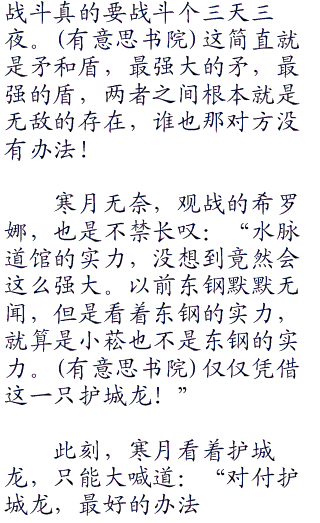 战斗真的要战斗个三天三
夜。(有意思书院)这简直就
是矛和盾，最强大的矛，最
强的盾，两者之间根本就是
无敌的存在，谁也那对方没
有办法！
寒月无奈，观战的希罗
娜，也是不禁长叹：“水脉
道馆的实力，没想到竟然会
这么强大。以前东钢默默无
闻，但是看着东钢的实力，
就算是小菘也不是东钢的实
力。(有意思书院)仅仅凭借
这一只护城龙！”
此刻，寒月看着护城
龙，只能大喊道：“对付护
城龙，最好的办法